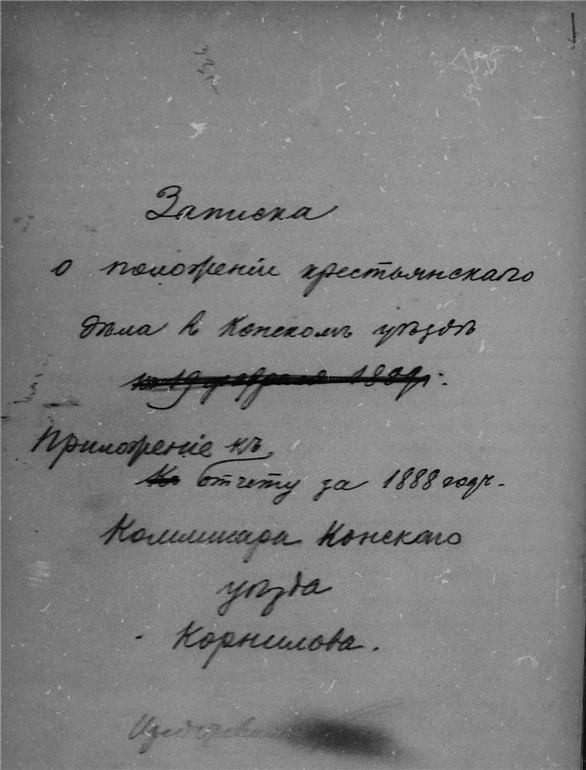 Записка
о положеніи крестьянскаго
дѣла в Конскомъ уѣздѣ
на 19 февраля 1889 г.
Приложеніе къ
Къ отчету за 1888 годъ.
Коммисара Конскаго
уѣзда
Корнилова.